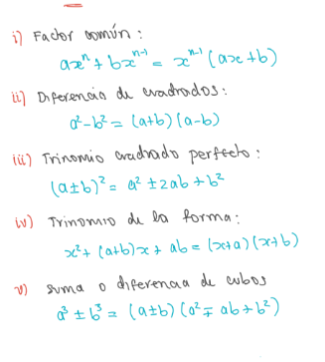 i) Factor común:
axⁿ + bxⁿ⁻¹ = xⁿ⁻¹ (ax+b)
ii) Diferencia de cuadrados:
a²-b² = (a+b)(a-b)
iii) Trinomio cuadrado perfecto:
(a±b)² = a² ± 2ab + b²
iv) Trinomio de la forma:
x² + (a+b)x + ab = (x+a)(x+b)
v) suma o diferencia de cubos
a³ ± b³ = (a±b)(a² ∓ ab + b²)